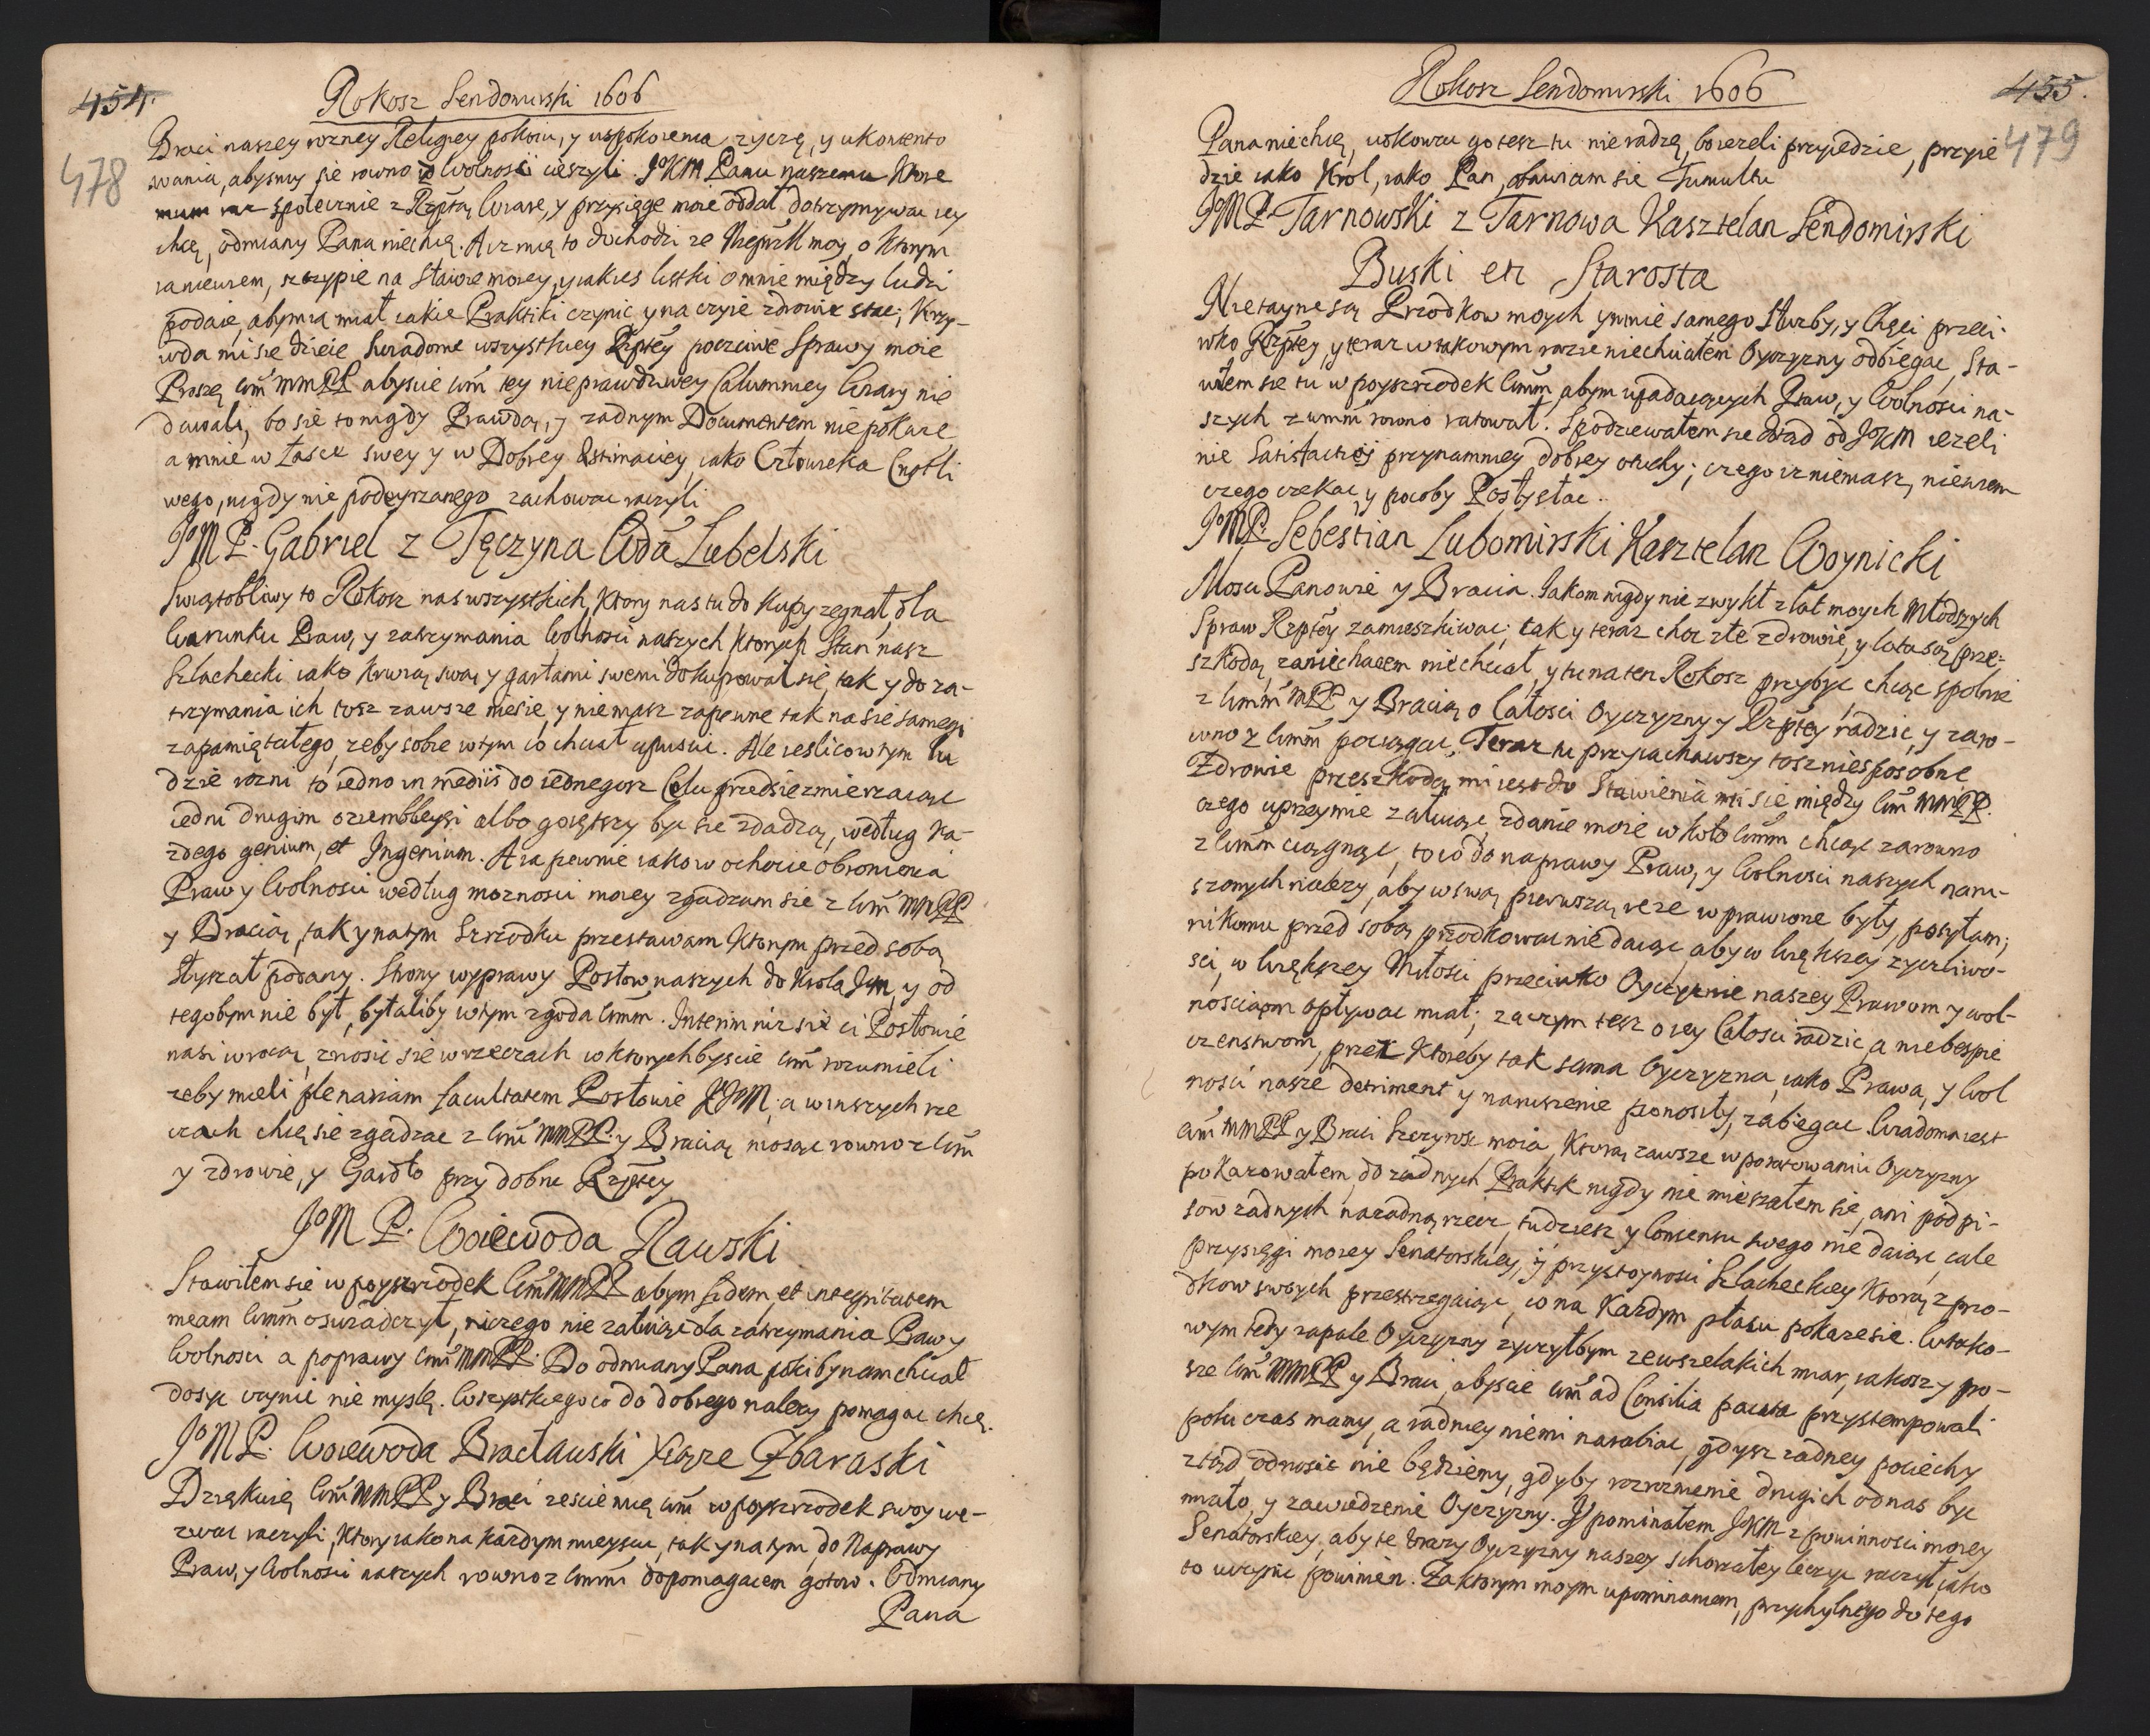 454.
Rokosz Sendomirski 1606
478
Braci naszey rozney Religyey pokoiu, y uspokoienia zyczę, y ukontento
wania, abysmy się rowno z Wolnosci cieszyli. JKM Panu naszemu Ktore
spolecznie z Rzptą Wiarę, y przysięgę moię oddał dotrzymywac iey
chcę, odmiany Pana niechcę. A iz mię to dochodzi ze Nieprzll moy, o ktorym
ia niewiem, szczypie na Sławie moiey, y iakies listki o mnie między ludzi
podaie, abym ia miał iakie Praktiki czynic y na czyie zdrowie stac; Krzy-
wda mi się dzieie swiadome wszystkiey Rzptey poczciwe Sprawy moie
Proszę Wm MMPP abyscie Wm tey nieprawdziwey Calumniey Wiary nie
dawali, bo się to nigdy Prawdą, y zadnym Documentem nie pokaze
a mnie w Łasce swey y w Dobrey Estimaciey, iako Człowieka Cnotli
wego, nigdy nie podeyrzanego zachowac raczyli
JoM P. Gabriel z Tęczyna Wda Lubelski
Swiątobliwy to Rokosz nas wszystkich, ktory nas tu do kupy zegnał, dla
Warunku Praw, y zatrzymania Wolnosci naszych ktorych Stan nasz
Szlachecki iako krwią swą y garłami swemi dokupował się, tak y do za-
trzymania ich tosz zawsze niesie, y niemasz zapewne tak na się samego
zapamiętałego, zeby sobie w tym co chciał upuscic. Ale iesli co w tym lu
dzie rozni to iedno in mediis do iednegosz Celu przedsie zmierzaiąc
iedni drugim oziemblleysi albo gorętszy byc się zdadzą, według ka-
zdego genium, et Ingenium. A ia pewnie iako w ochocie obronienia
Praw y Wolnosci według moznosci moiey zgadzam się z Wm MMPP
y Bracią, tak y na tym Srzodku przestawam ktorym przed sobą
słyszał podany. Strony wyprawy Posłow naszych do Krola Jm, y od
tego bym nie był, byłaliby w tym zgoda Wmm. Interim niz się ci Posłowie
nasi wrocą, znosic się w rzeczach w ktorych byscie Wm rozumieli
zeby mieli plenariam facultatem Posłowie JKM; a w inszych rze
czach chcę się zgadzac z Wm MMPP. y Bracią niosąc rowno z Wm
y zdrowie, y Gardło przy dobru Rzptey
JoM P. Woiewoda Rawski
Stawiłem się w poyszrzodek Wm MMPP abym fidem, et integritatem
meam Wmm oswiadczył, niczego nie załuiąc dla zatrzymania Praw y
Wolnosci a poprawy Wm MMPP. Do odmiany Pana pokiby nam chciał
dosyc czynic nie myslę. Wszystkiego co do dobrego nalezy pomagac chcę.
JoM P. Woiewoda Bracławski Xiąze Zbaraski
Dziękuię Wm MMPP y Braci zescie mię Wm w poyszrzodek swoy we-
zwac raczyli, Ktory iako na kazdym mieyscu, tak y na tym do Naprawy
Praw, y Wolnosci naszych rowno z Wmm dopomagacem gotow. Odmiany
Pana
Rokosz Sendomirski 1606
455.
479
Pana niechcę, uskowzu go tesz tu nie radzę, bo iezeli przyiedzie, przyie
dzie iako Krol, iako Pan, obawiam się Tumultu
JoM P. Tarnowski z Tarnowa Kasztelan Sendomirski
Buski etc Starosta
Nie tayne są Przodkow moych y mnie samego Służby, y Chęci przeci-
wko Rzptey, y teraz w takowym razie niechciałem Oyczyzny odbiegac, Sta-
wiłem się tu w poyszrzodek Wmm, abym upadaiących Praw, y Wolnosci na-
szych z wmm rowno ratował. Spodziewałem się dotąd od JoKM iezeli
nie Satisfactiej przynamniey dobrey otuchy; czego iz niemasz, niewiem
czego czekac, y pocoby Posły słac.
JoM P. Sebestian Lubomirski Kasztelan Woynicki
Mosci Panowie y Bracia. Jakom nigdy nie zwykł z lat moych Młodszych
Spraw Rzptey zamieszkiwac; tak y teraz choc złe zdrowie, y lata są prze-
szkodą, zaniechacem niechciał, y tu na ten Rokosz przybyc chcąc spolnie
z Wmm MPP y Bracią o Całosci Oyczyzny y Rzptey radzic, y zaro-
wno z Wmm pociągac, Teraz tu przyiachawszy tosz niesposobne
Zdrowie przeszkodą mi iest do Stawienia się między Wm MMPP.
czego uprzeymie załuiąc, zdanie moie w koło Wmm chcąc zarowno
z Wmm ciągnąc, to co do naprawy Praw, y Wolnosci naszych naru-
szonych nalezy, aby w swą pierwszą reze wprawione były, posyłam;
nikomu przed sobą przodkowac nie daiąc, aby w większey zyczliwo-
sci, w większey Miłosci przeciwko Oyczyznie naszey Prawom y wol-
nosciom opływac miał; zaczym tesz o iey Całosci radzic, a niebespie
czenstwom, przez ktoreby tak sama Oyczyzna, iako Prawa, y Wol
nosci nasze detriment y naruszenie ponosiły, zabiegac Wiadoma iest
Wm MMPP y Braci Szczyrosc moia, ktorą zawsze w poratowaniu Oyczyzny
pokazowałem, do zadnych Praktik nigdy nie mieszałem się, ani podpi-
sow zadnych na zadną rzecz, tudziesz y Consensu swego nie daiąc, cale
przysięgi moiey Senatorskiey, y przystoynosci Szlacheckiey ktorą z pro-
dkow swoych przestrzegaiąc, co na Kazdym płacu pokaze się. W tako-
wym tedy zapale Oyczyzny zyczyłbym zewszelakich miar, iakosz y po-
sze Wm MMPP y Braci, abyscie Wm ad Consilia pacata przystempowali
poki czas mamy, a radniey niemi narabiac, gdysz zadney pociechy
ztąd odnosic nie będziemy, gdyby rozroznienie drugich od nas byc
miało, y zawiedzenie Oyczyzny. Upominałem JKM z powinnosci moiey
Senatorskiey, aby te wrazy Oyczyzny naszey schorzałey leczyc raczył, iako
to uczynic powinien. Za ktorym moym upominaniem, przychylnego do tego